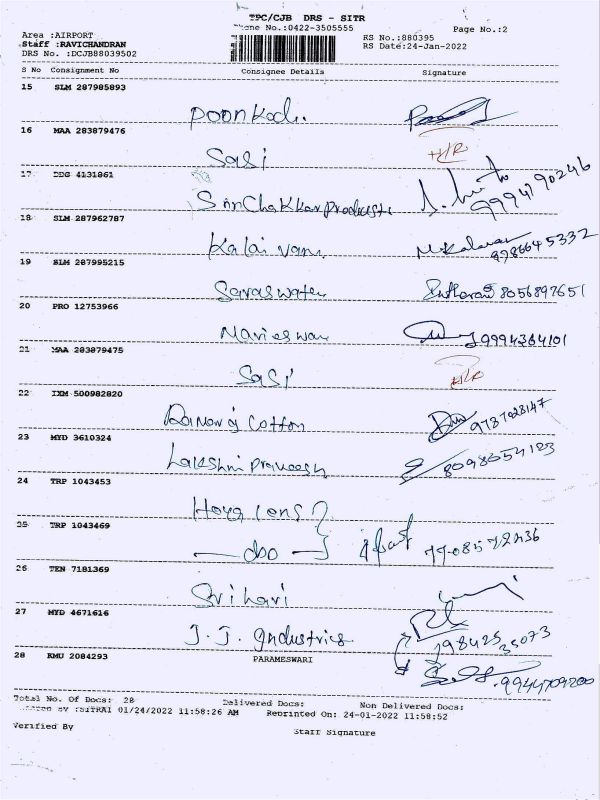 TPC/CJB DRS - SITR
Phone No.:0422-3505555
Page No.:2
Area :AIRPORT
Staff :RAVICHANDRAN
DRS No. :DCJB88039502
RS No.:880395
RS Date:24-Jan-2022
S No Consignment No Consignee Details Signature
15 SLM 287985893
Poonkodi.
16 MAA 283879476
Sasi H/R
17 DDG 4131861
Sri Chakkar Products 9994790246
18 SLM 287962787
Kalaivani 9786645332
19 SLM 287995215
Saraswathi 8056897651
20 PRO 12753966
Marieswari 9994364101
21 MAA 283879475
Sasi H/R
22 IXM 500982820
Cotton 9787028147
23 MYD 3610324
Lakshmi 8098654123
24 TRP 1043453
Hoya lens
25 TRP 1043469
do
26 TEN 7181369
Srihari
27 MYD 4671616
J.J. Industries
28 KMU 2084293 PARAMESWARI
9944709200
Total No. Of Docs: 28 Delivered Docs: Non Delivered Docs:
01/24/2022 11:58:26 AM Reprinted On: 24-01-2022 11:58:52
Verified By Staff Signature